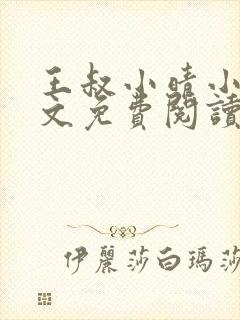 王叔小晴小
文免費閱讀
伊麗莎白瑪莎